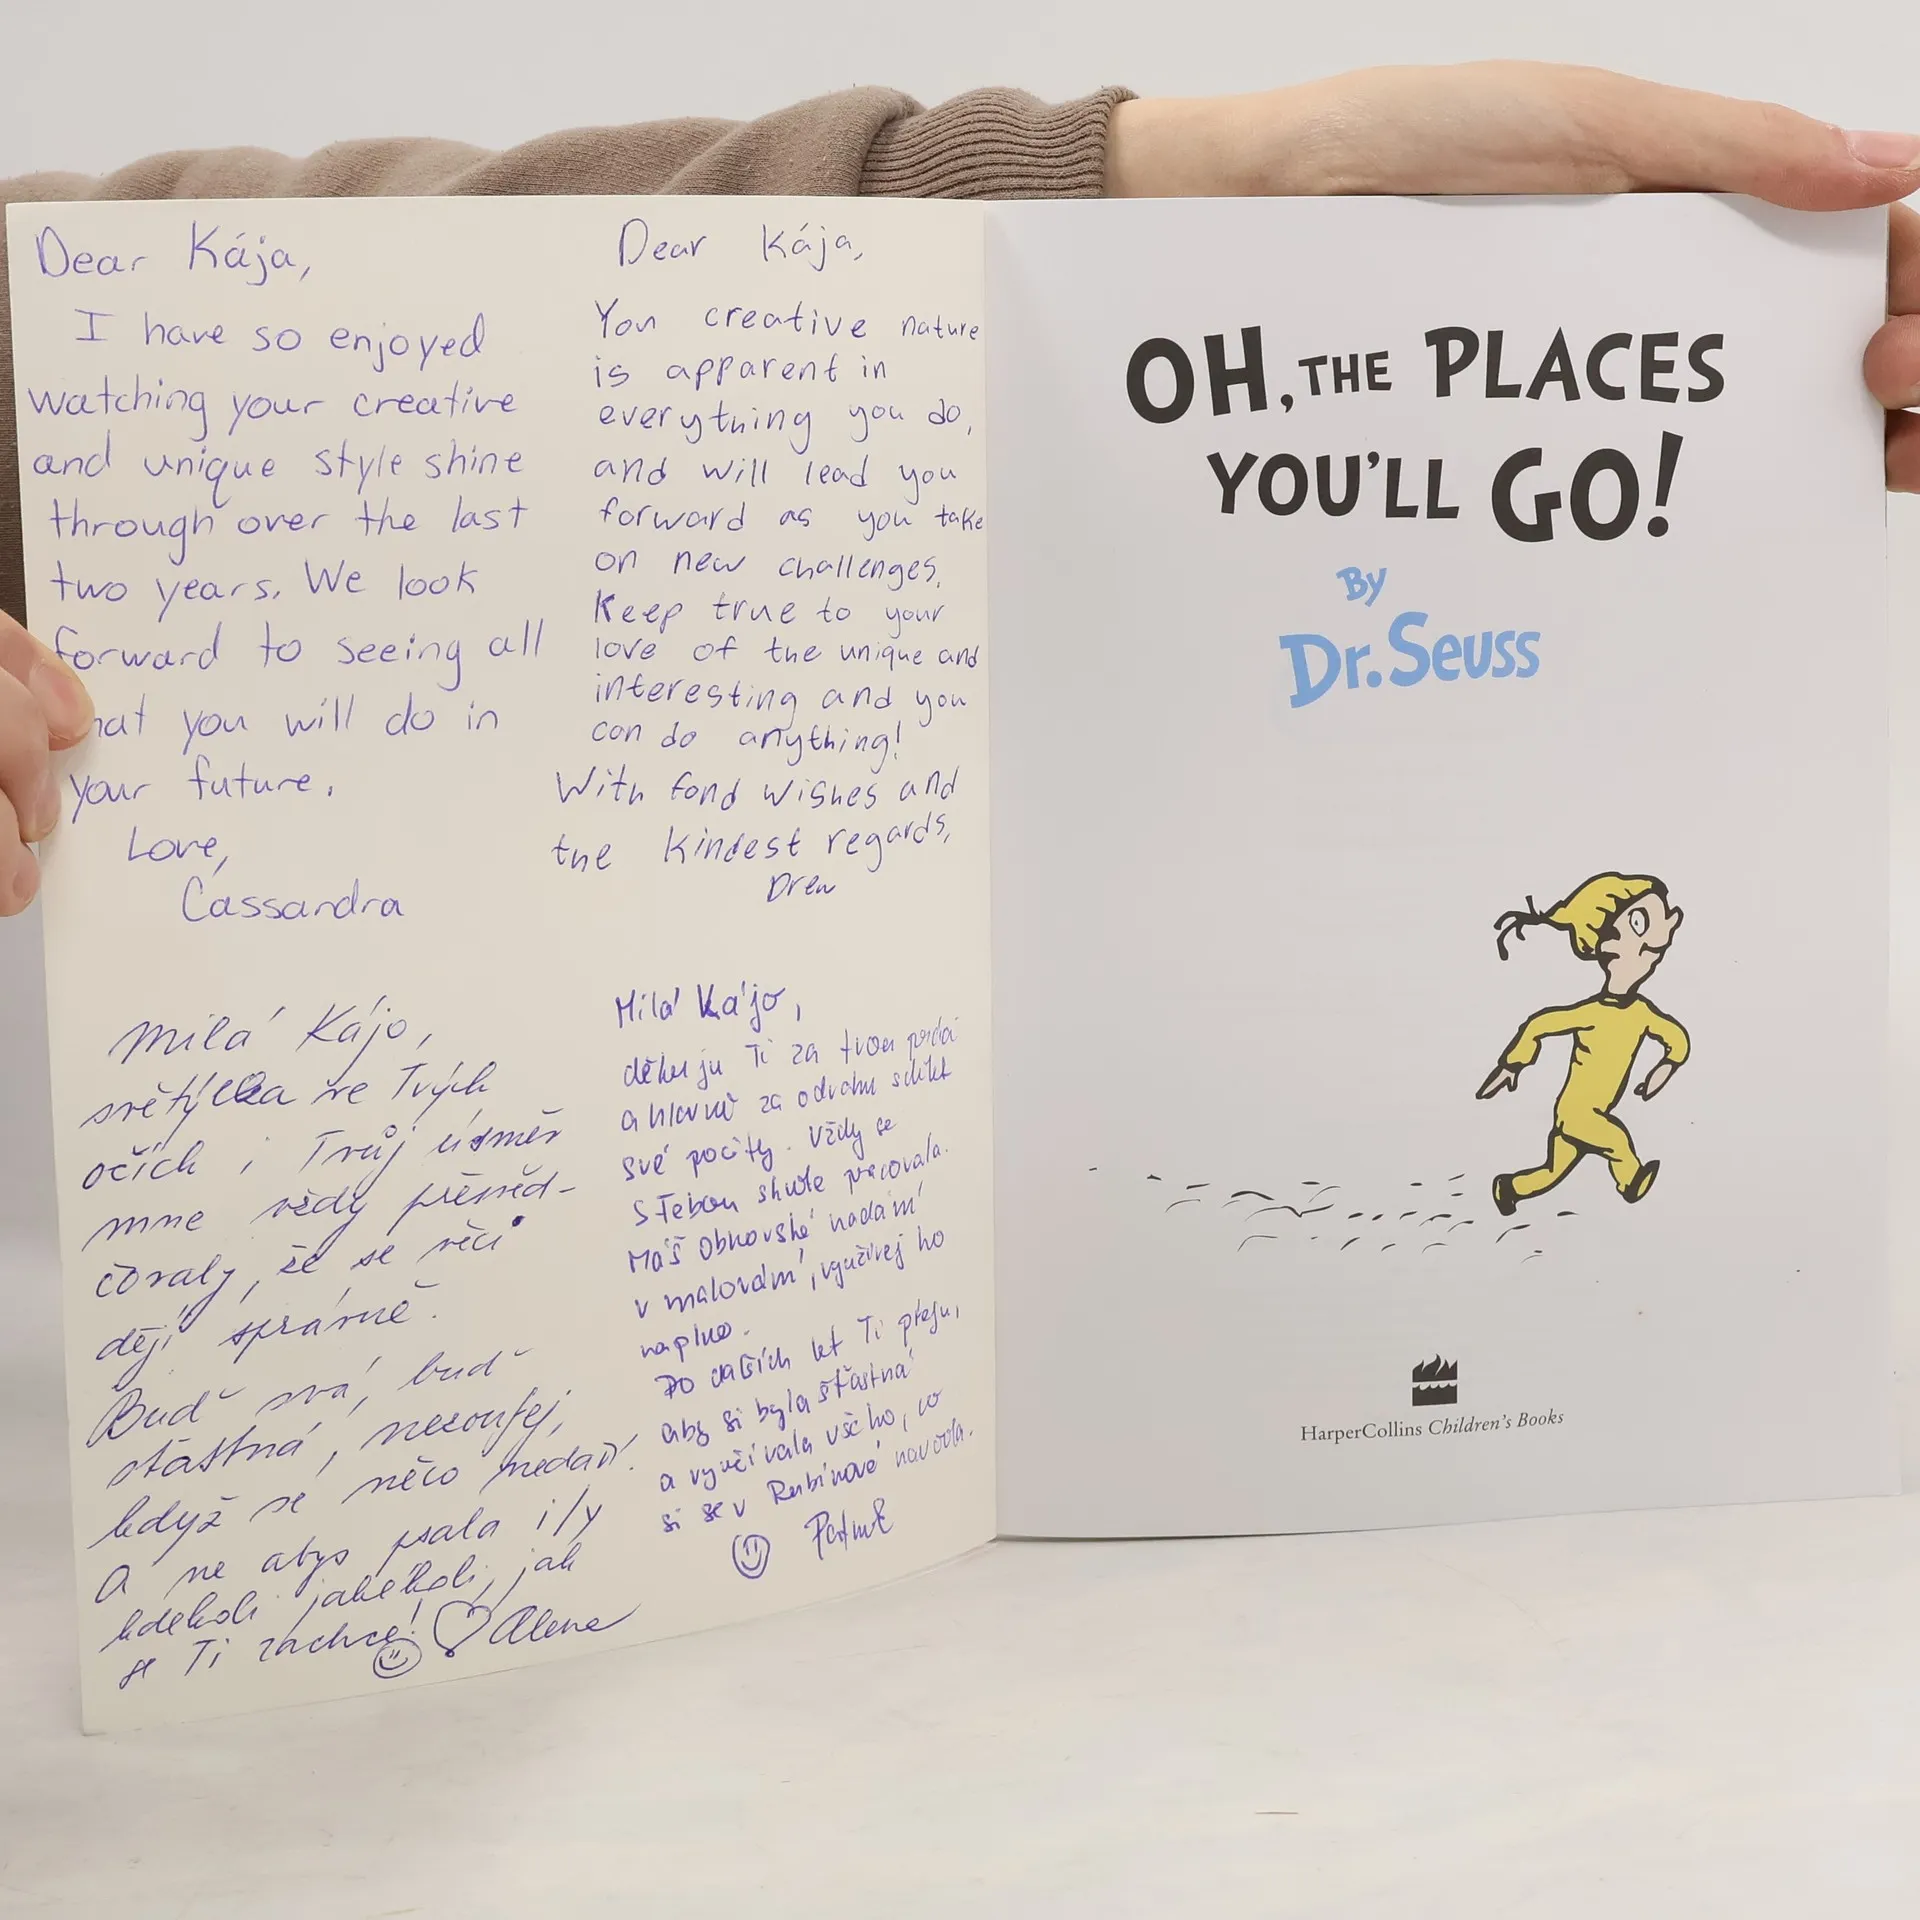 Dear Kája,
I have so enjoyed
watching your creative
and unique style shine
through over the last
two years. We look
forward to seeing all
hat you will do in
your future.
Love,
Cassandra
Dear Kája,
You creative nature
is apparent in
everything you do,
and will lead you
forward as you take
on new challenges.
Keep true to your
love of the unique and
interesting and you
can do anything!
With fond wishes and
the kindest regards,
Drew
Milá Kájo,
světýlka ve Tvých
očích i Tvůj úsměv
mne vždy přesvěd-
čovaly, že se věci
dějí správně.
Buď svá, buď
šťastná, nezoufej,
když se něco nedaří.
A ne abys psala i/y
kdekoli jakékoli, jak
se Ti zachce!
Alena
Milá Kájo,
děkuju Ti za tvou
a hlavně za odvahu sdílet
své pocity. Vždy se
s Tebou skvěle pracovala.
Máš obrovské nadání
v malování, využívej ho
naplno.
Do dalších let Ti přeju,
aby si byla šťastná
a využívala všeho, co
si se v Rubínové navodla.
OH, THE PLACES
YOU'LL GO!
By
Dr. Seuss
HarperCollins Children's Books